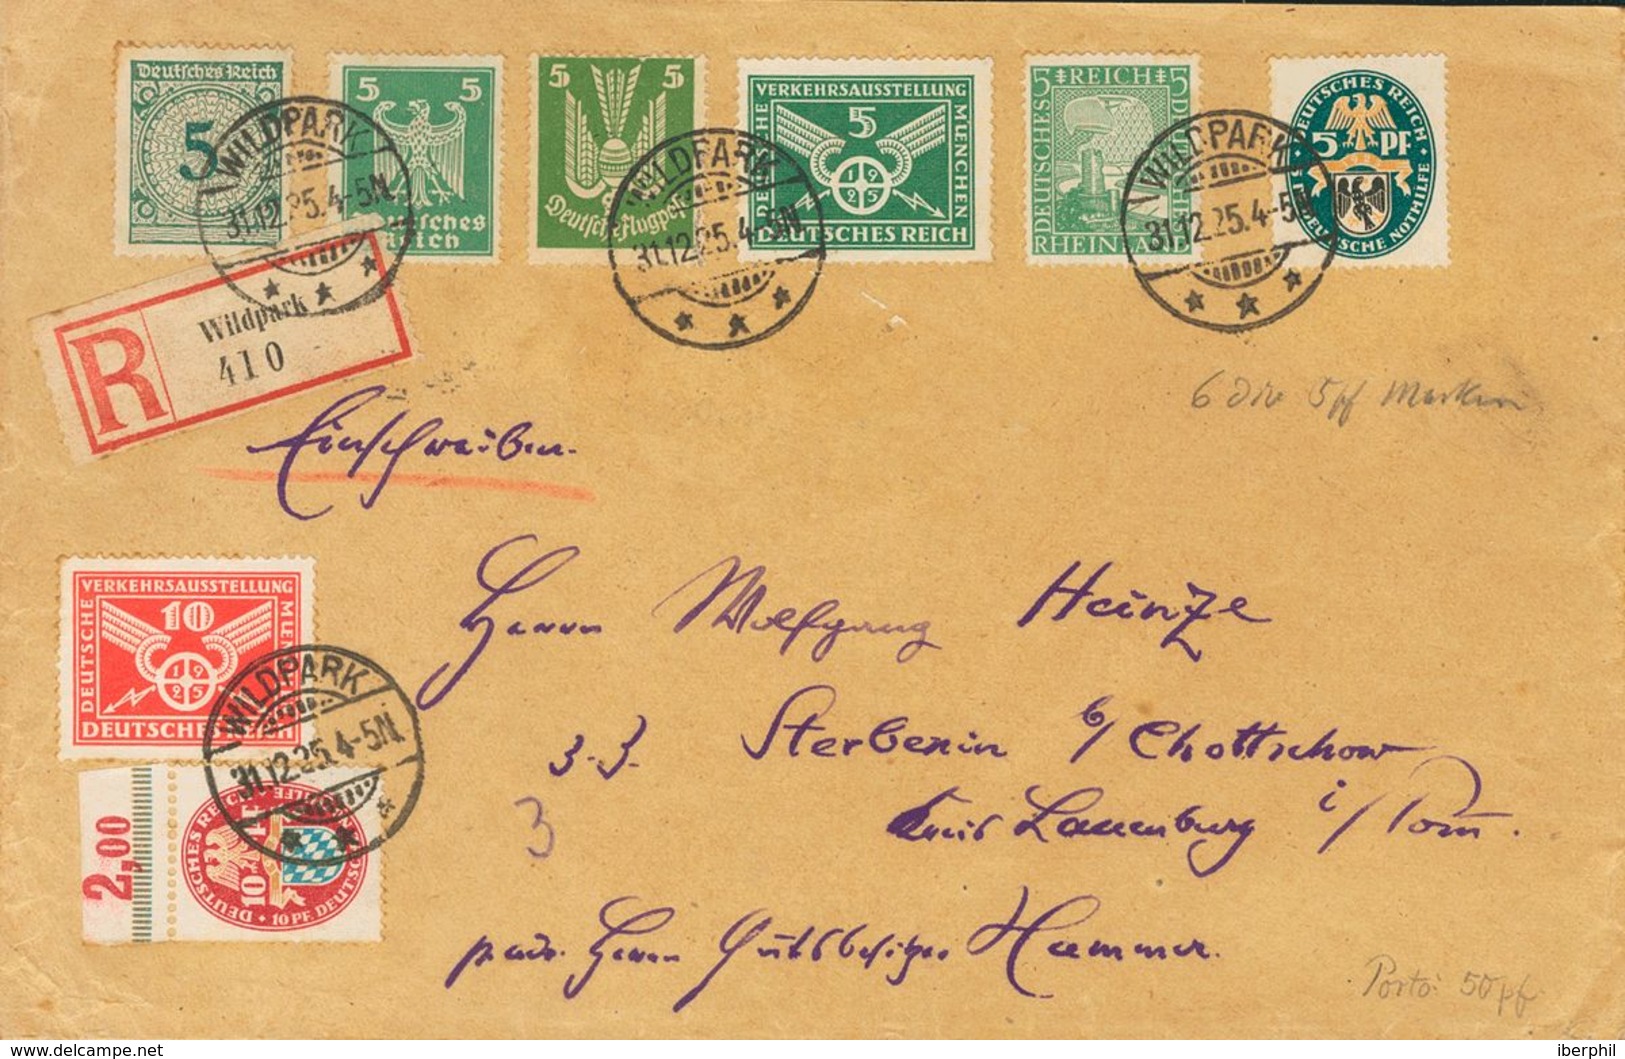 Deutsches Reich
5
5 5
Deutsches
Reich
5 5
Deutsche Flugpost
VERKEHRSAUSSTELLUNG
DEUTSCHE
5
MUENCHEN
1925
DEUTSCHES REICH
5 REICH 5
DEUTSCHES
RHEINLAND
DEUTSCHES REICH
5 PF
DEUTSCHE NOTHILFE
WILDPARK
31.12.25.4-5N.
WILDPARK
31.12.25.4-5N.
WILDPARK
31.12.25.4-5N
R
Wildpark
410
6 5pf Marken
Einschreiben.
VERKEHRSAUSSTELLUNG
DEUTSCHE
10
MUEN
1925
DEUTSCHE
WILDPARK
31.12.25.4-5N.
2,00
DEUTSCHES REICH
10 PF
10 PF. DEUTSCHE
Herrn Wolfgang Heinze
z. Z. Sterbenin b/ Chottschow
3
Kreis Lauenburg i/ Pom.
p. adr. Herrn Gutsbesitzer Hammer.
Porto: 50 pf.
delcampe.net
iberphil